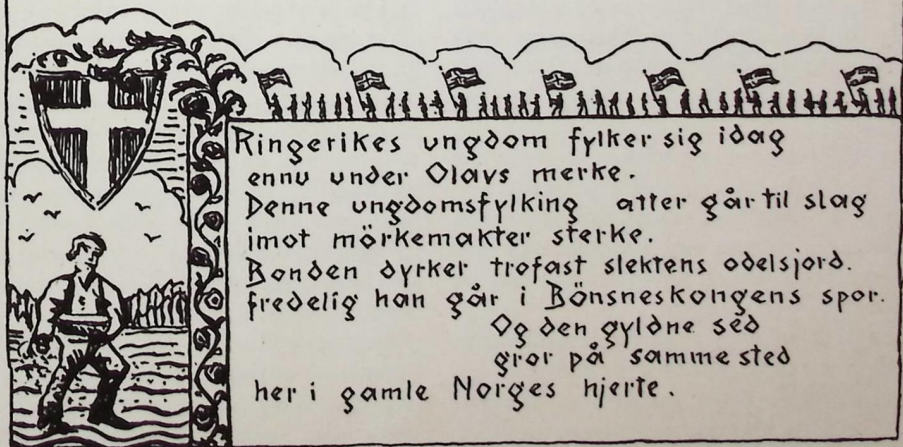 Ringerikes ungdom fylker sig idag
ennu under Olavs merke.
Denne ungdomsfylking atter går til slag
imot mörkemakter sterke.
Bonden dyrker trofast slektens odelsjord.
fredelig han går i Bönsneskongens spor.
Og den gyldne sed
gror på samme sted
her i gamle Norges hjerte.